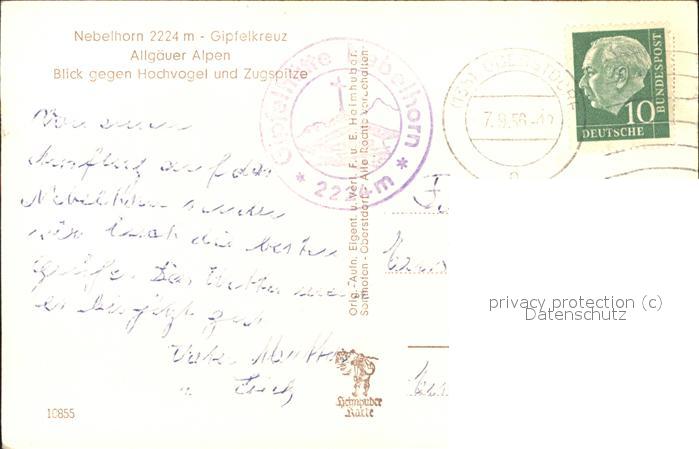 Nebelhorn 2224 m - Gipfelkreuz
Allgäuer Alpen
Blick gegen Hochvogel und Zugspitze
Gipfelhütte Nebelhorn
* 2224 m *
OBERSTDORF
7.9.56
10
DEUTSCHE
BUNDESPOST
Von einem
Ausflug auf das
Nebelhorn senden
wir Euch die besten
Grüße. Das Wetter war
bis jetzt gut
Vater Mutter
u.
Orig.-Aufn. Eigent. u. Verl. F. u. E. Heimhuber.
Sonthofen - Oberstdorf - Alle Rechte vorbehalten
privacy protection (c)
Datenschutz
Heimhuber
Karte
10855